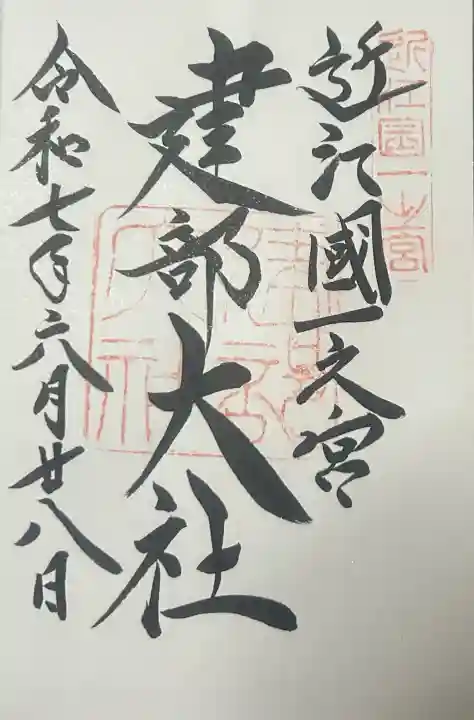 近江國一之宮
近江国一之宮
建部大社
建部大社
令和七年六月廿八日